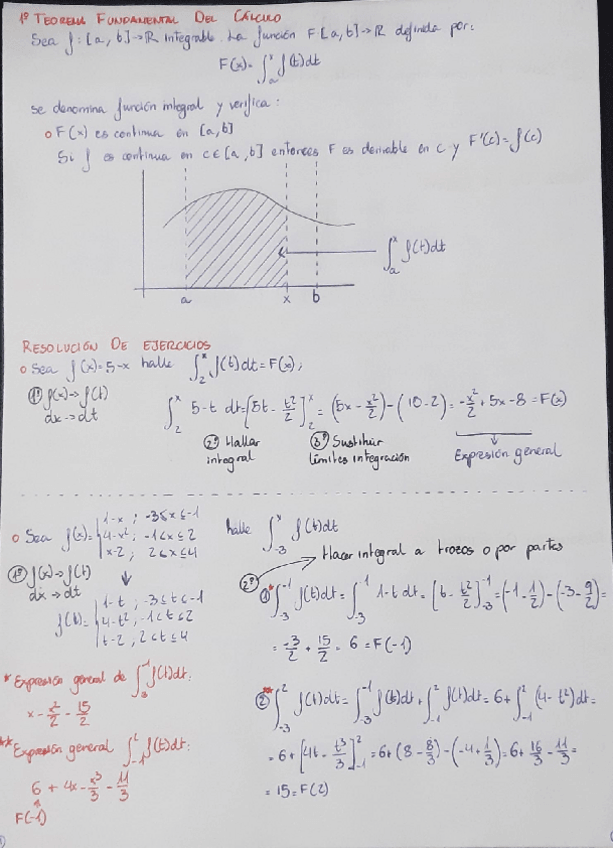 1º TEOREMA FUNDAMENTAL DEL CÁLCULO
Sea f: [a, b]→ℝ integrable. La función F[a, b]→ℝ definida por:
F(x)=∫ₐˣ f(t)dt
se denomina función integral y verifica:
o F(x) es continua en [a,b]
Si f es continua en c∈[a, b] entonces F es derivable en c y F'(c)=f(c)
∫ₐˣ f(t)dt
a x b
RESOLUCIÓN DE EJERCICIOS
o Sea f(x)=5-x halle ∫₂ˣ f(t)dt=F(x);
1º f(x)→f(t)
dx→dt
∫₂ˣ 5-t dt=[5t - t²/2]₂ˣ = (5x - x²/2)-(10-2)= -x²/2 + 5x - 8 = F(x)
2º Hallar integral
3º Sustituir límites integración
Expresión general
o Sea f(x)= { 1-x ; -3≤x≤-1
4-x² ; -1<x≤2
x-2 ; 2≤x≤4
halle ∫₋₃ˣ f(t)dt
1º f(x)→f(t)
dx→dt
f(t)= { 1-t ; -3≤t≤-1
4-t² ; -1<t≤2
t-2 ; 2≤t≤4
2º Hacer integral a trozos o por partes
1* ∫₋₃⁻¹ f(t)dt= ∫₋₃⁻¹ 1-t dt= [t - t²/2]₋₃⁻¹=(-1-1/2)-(-3-9/2)=
= -3/2 + 15/2 = 6 = F(-1)
* Expresión general de ∫₋₃⁻¹ f(t)dt:
x - x²/2 - 15/2
2** ∫₋₃² f(t)dt= ∫₋₃⁻¹ f(t)dt+∫₋₁² f(t)dt= 6+∫₋₁² (4-t²)dt=
= 6+[4t - t³/3]₋₁²=6+(8-8/3)-(-4+1/3)=6+ 16/3 - 11/3 =
= 15=F(2)
** Expresión general ∫₋₁² f(t)dt:
6 + 4x - x³/3 - 11/3
F(-1)